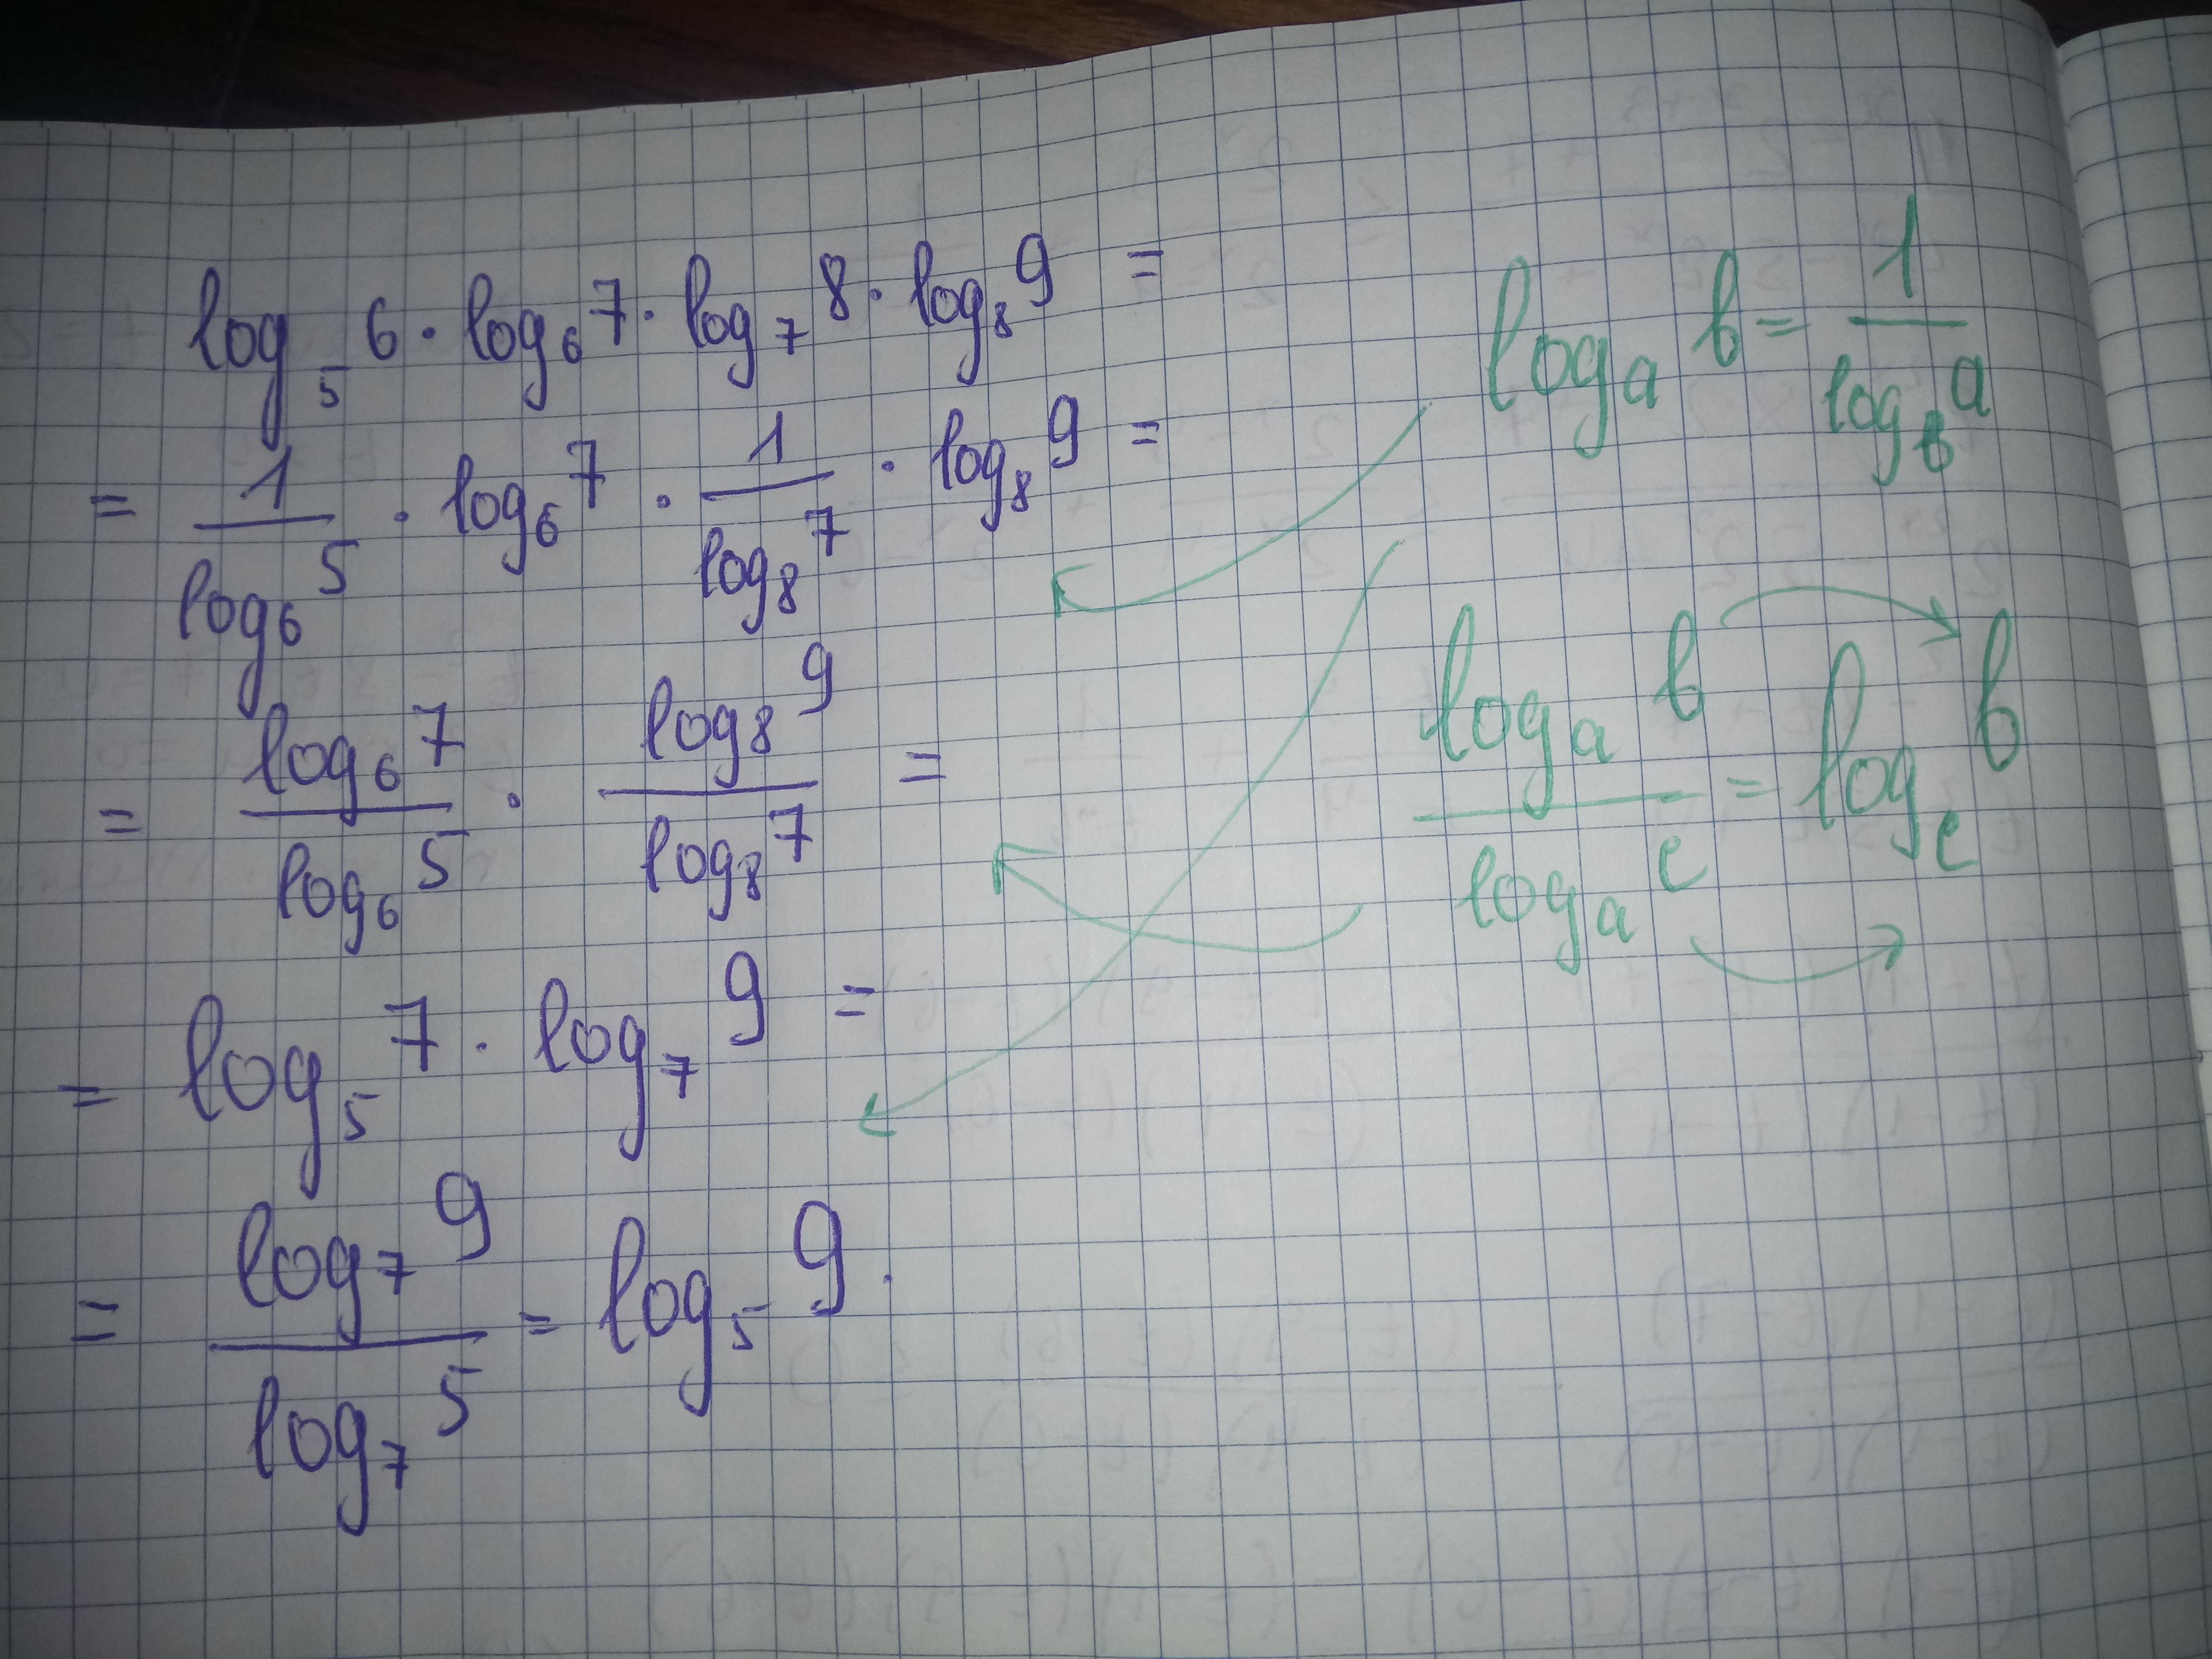 log₅ 6 · log₆ 7 · log₇ 8 · log₈ 9 =
= 1/log₆ 5 · log₆ 7 · 1/log₈ 7 · log₈ 9 =
= log₆ 7/log₆ 5 · log₈ 9/log₈ 7 =
= log₅ 7 · log₇ 9 =
= log₇ 9/log₇ 5 = log₅ 9.
logₐ b = 1/log_b a
logₐ b/logₐ c = log_c b